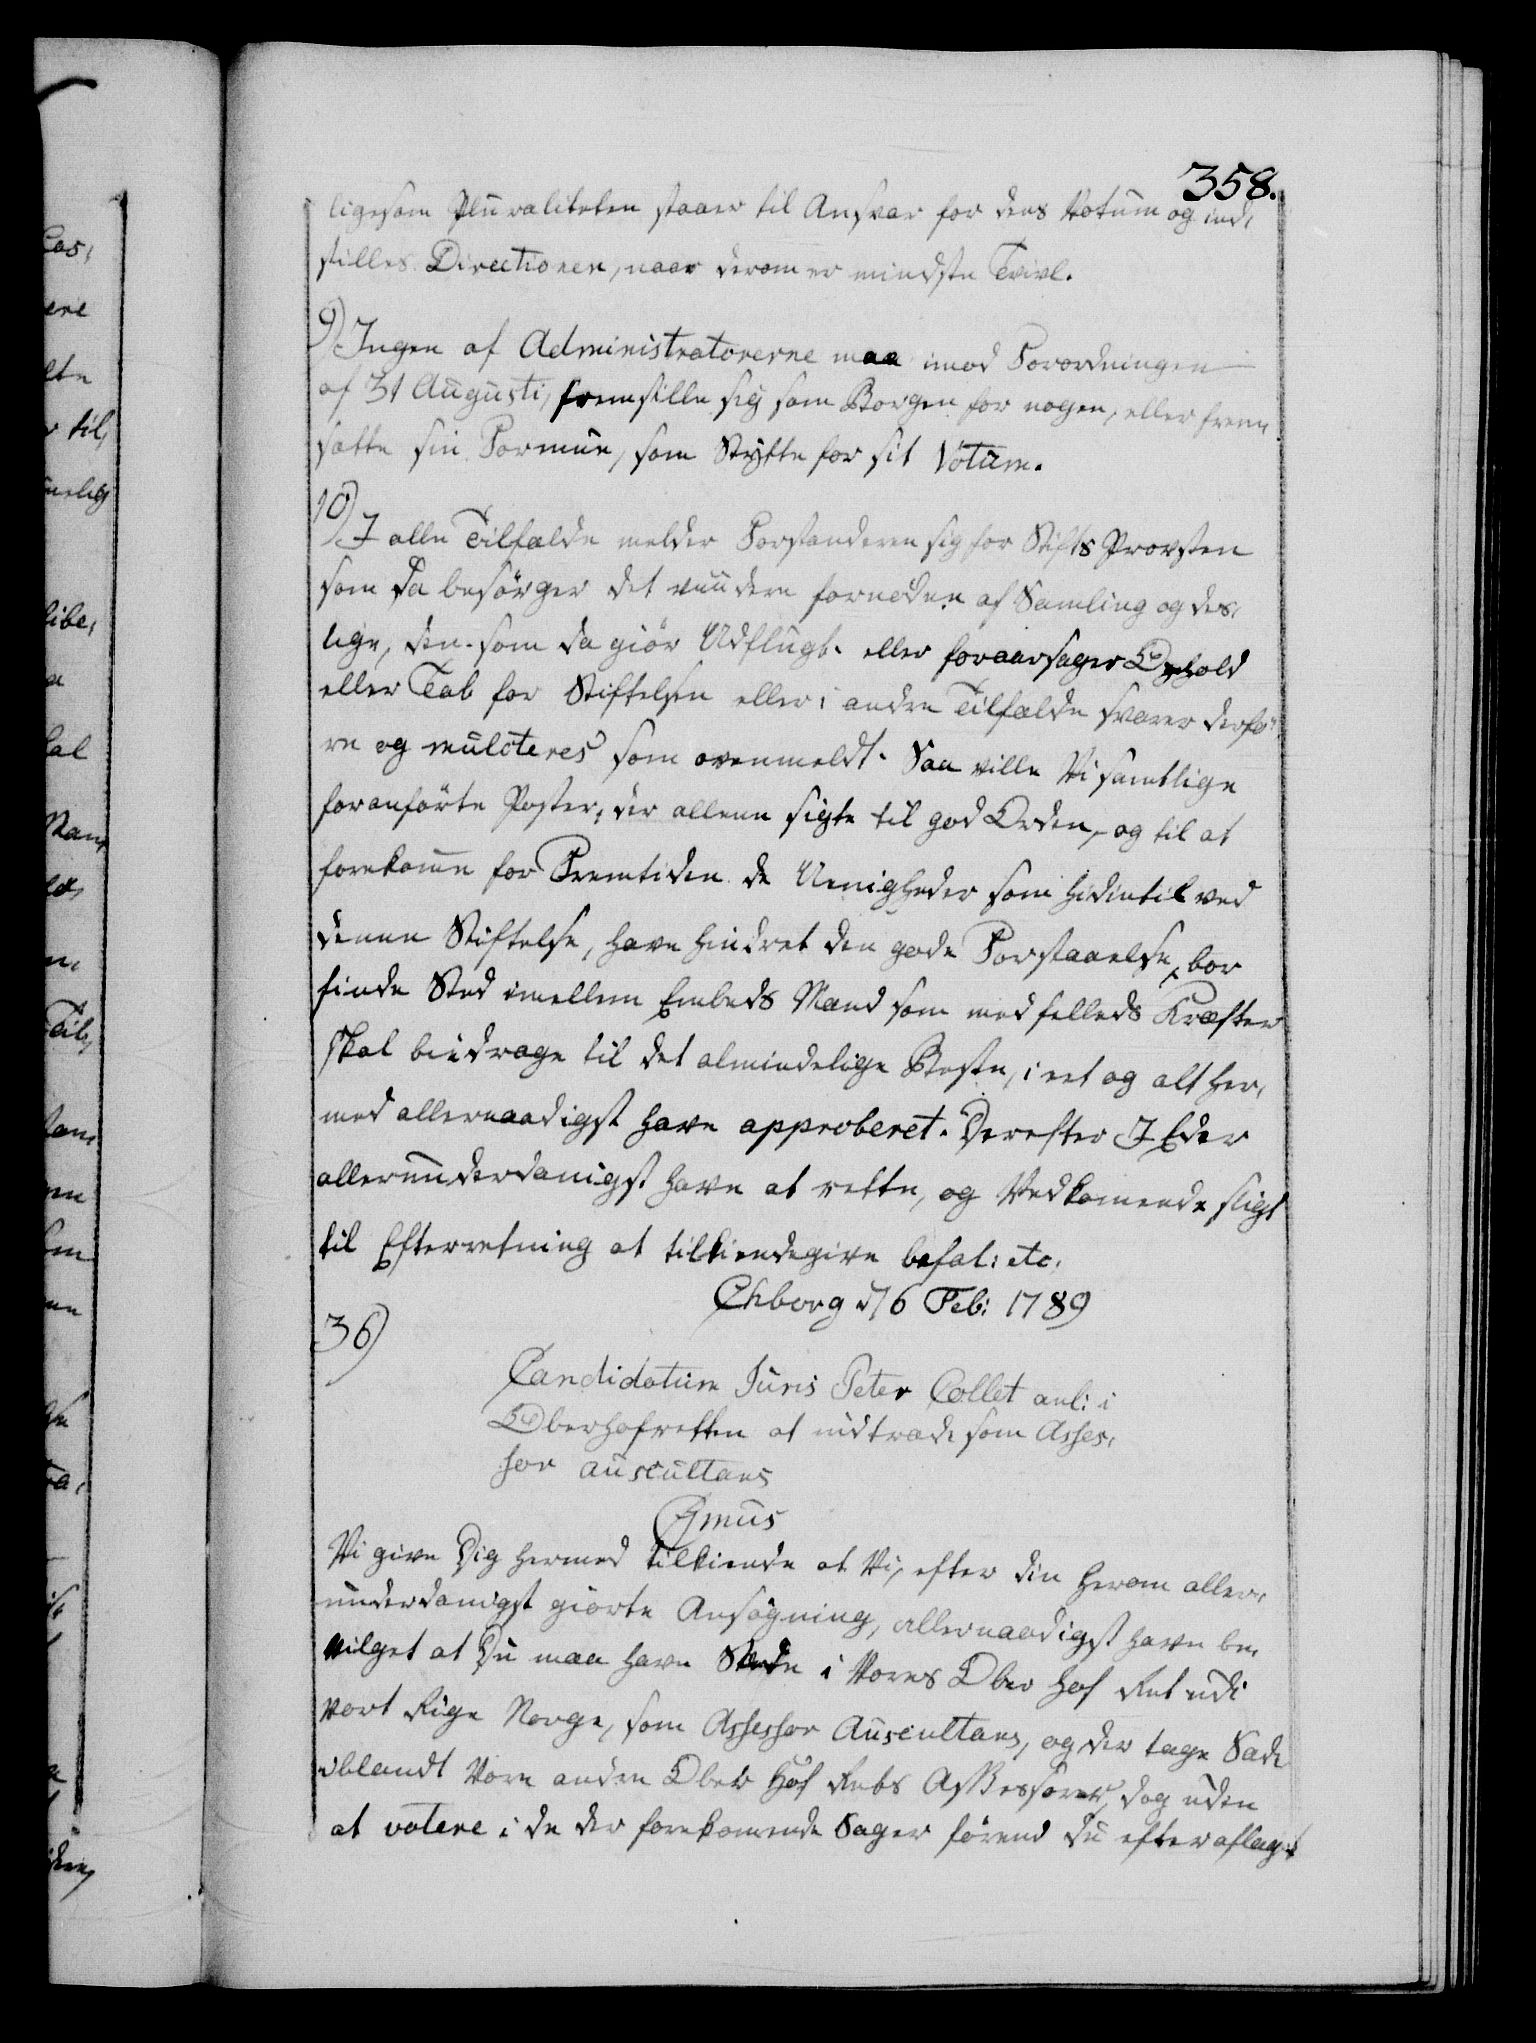 358.
ligesom Pluraliteten staaer til Ansvar for dens Votum og ind,
stilles Directionen, naar derom er mindste Tvivl.
9) Ingen af Administratorerne maa imod Forordningen
af 31 Augusti, fremstille sig som Borgen for nogen, eller frem
sætte sin Formue, som Støtte for sit Votum.
10) I alle Tilfælde melder Forstanderen sig for Stifts Provsten
som da besørger det viidere fornødne af Samling og des,
lige, den som da giör Udflugt eller foraarsager Ophold
eller Tab for Stiftelsen eller i andre Tilfælde svarer derfo
re og mulcteres som ovenmeldt. Saa ville Vi samtlige
foranførte Poster, der allene sigte til god Orden, og til at
forekomme for Fremtiden de Uenigheder som hidintil ved
denne Stiftelse, have hindret den gode Forstaaelse, bør
finde Sted imellem Embeds Mænd som med fælleds Kræfter
skal biedrage til det almindelige Beste, i eet og alt her,
med allernaadigst have approberet. Derefter I Eder
allerunderdanigst have at rette, og Vedkomende sligt
til Efterretning at tilkiendegive befal: etc.
Chborg d 6 Feb: 1789
36)
Candidatum Juris Peter Collet anl: i
Oberhofretten at indtræde som Asses,
sor auscultans
C7mus
Vi give Dig hermed tilkiende at Vi, efter din herom aller,
underdanigst giorte Ansøgning, allernaadigst have be,
vilget at Du maa have Sæde i Vores Ober Hof Ret udi
vort Rige Norge, som Assessor Auscultans, og der tage Sæde
iblandt Vore andre Ober Hof Rets Assessorer, dog uden
at votere i de der forekomende Sager förend du efter aflagt